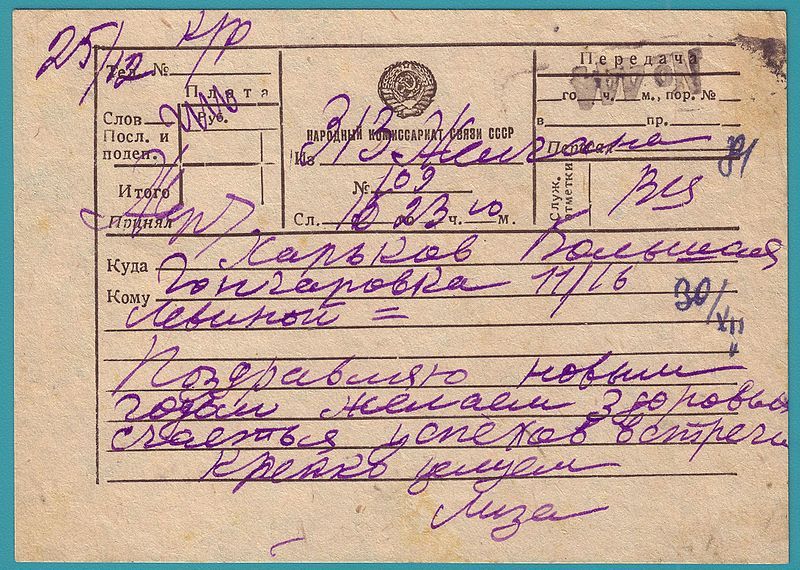 25/12 К/р
Тел. №
Плата
Слов Руб.
Посл. и
поден.
Итого
Принял
НАРОДНЫЙ КОМИССАРИАТ СВЯЗИ СССР
Из 313
№ 109
Сл. 16 23 го ч. 10 м.
Передача
го ч. м., пор. №
в пр.
Передал
Служ. отметки
Куда Харьков Большая
Кому Гончаровка 11/16
Левиной =
30/XII
Поздравляю новым
годом желаем здоровья
счастья успехов встречи
крепко целуем
Лиза